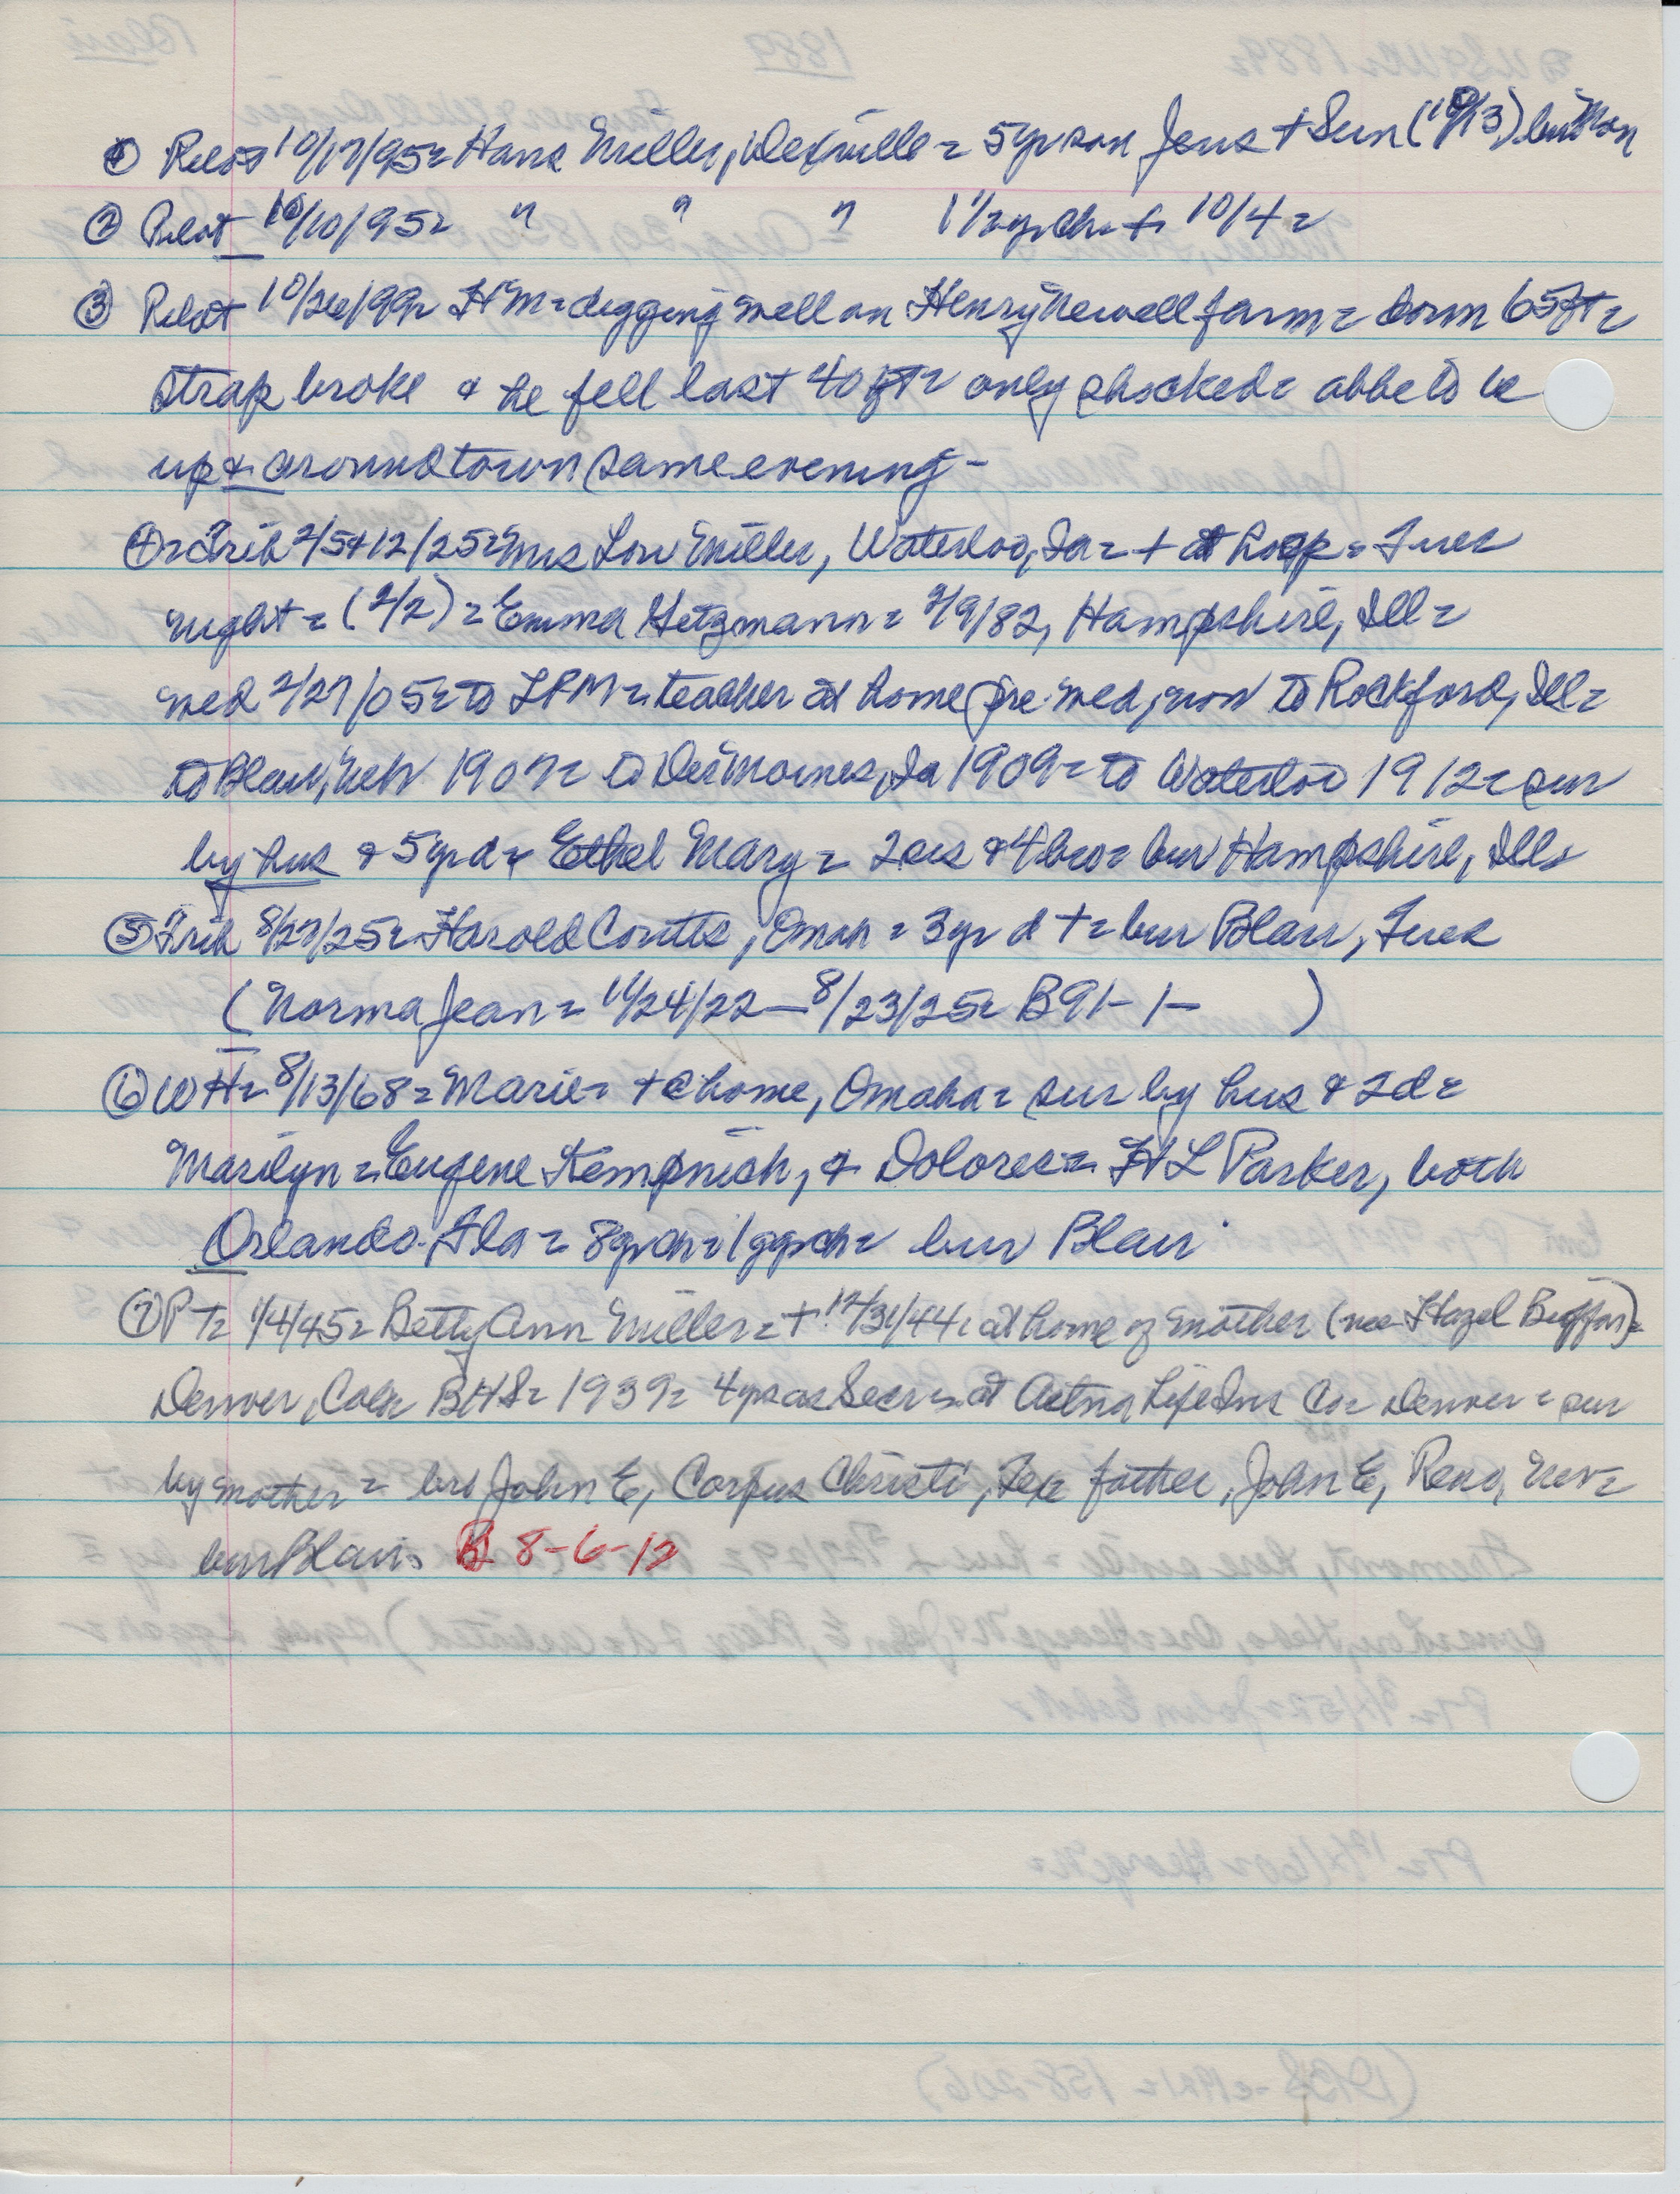 ① Pilot 10/17/95 = Hans Miller, DeSoville = 5 yr son Jens + Sun (10/13) bur Mon
② Pilot 10/10/95 = " " " 1 1/2 yr ch = + 10/4 =
③ Pilot 10/26/99 = HM = digging well on Henry Newell farm = down 65 ft =
strap broke & he fell last 40 ft = only shocked = able to be
up & around town same evening -
④ = Trib 2/5 + 12/25 = Mrs Lou Miller, Waterloo, Ia = + at hosp = Tues
night = (2/2) = Emma Hetzmann = 2/9/82, Hampshire, Ill =
med 2/27/05 = to LPM = teacher at home pre-med, mov to Rockford, Ill =
to Blair, Neb 1907 = to Des Moines, Ia 1909 = to Waterloo 1912 = sur
by hus & 5 yr d = Ethel Mary = 2 sis & 4 bro = bur Hampshire, Ill =
⑤ Trib 8/27/25 = Harold Coutts, Omah = 3 yr d + = bur Blair, Tues
(Norma Jean = 11/24/22 — 8/23/25 = B91-1- )
⑥ WH = 8/13/68 = Marie = + @ home, Omaha = sur by hus & 2d =
Marilyn = Eugene Kempnich, & Dolores = HL Parker, both
Orlando. Fla = 8 grch = 1 ggrch = bur Blair
⑦ PT = 1/4/45 = Betty Ann Miller = + 12/31/44 = at home of mother (nee Hazel) =
Denver, Colo = BHS = 1939 = 4 yrs as Secr = at Aetna Life Ins Co = Denver = sur
by mother = bro John E, Corpus Christi, Tex father, John E, Reno, Nev =
bur Blair = B 8-6-12